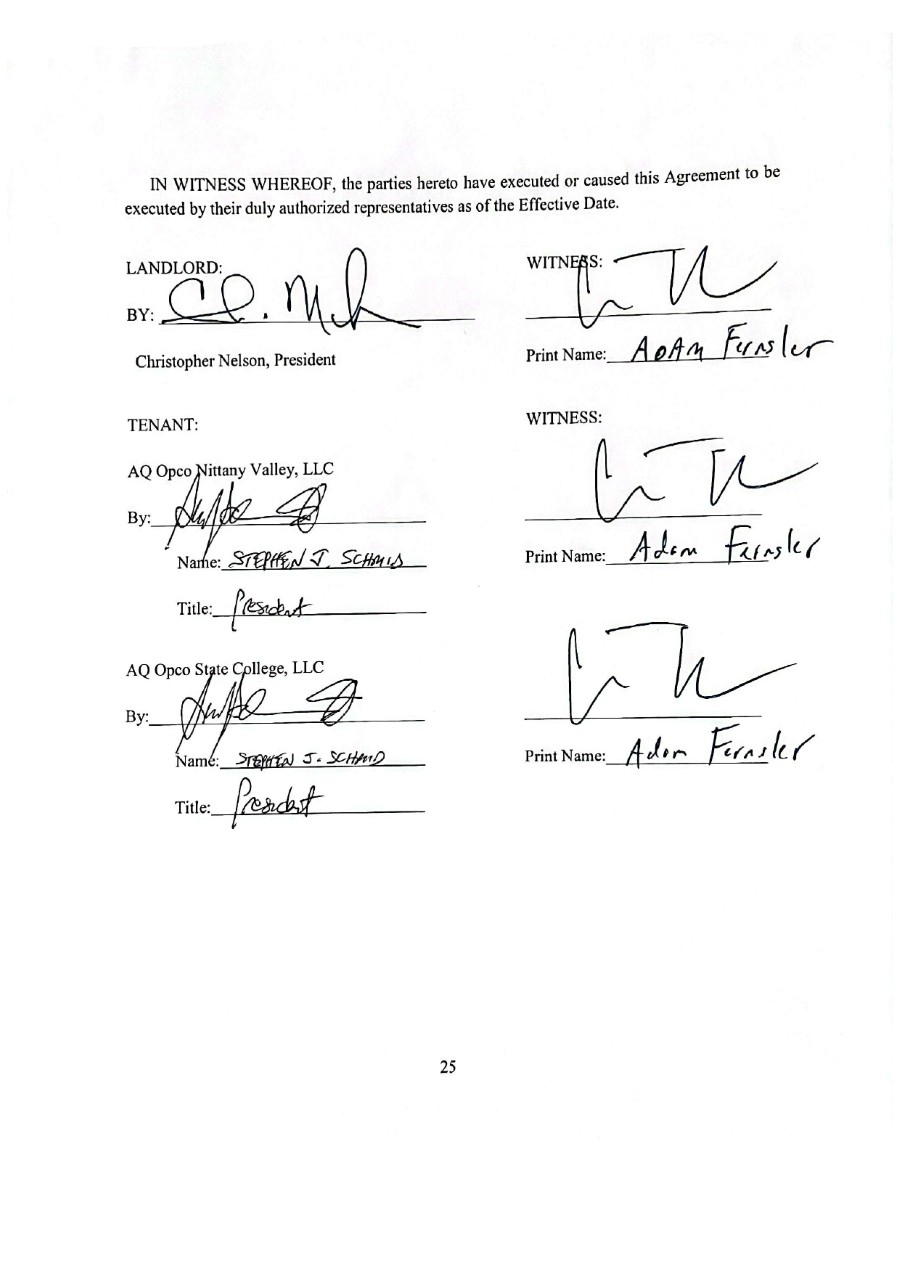 IN WITNESS WHEREOF, the parties hereto have executed or caused this Agreement to be
executed by their duly authorized representatives as of the Effective Date.
LANDLORD:
BY:
Christopher Nelson, President
WITNESS:
Print Name: ADAM Fernsler
TENANT:
AQ Opco Nittany Valley, LLC
By:
Name: STEPHEN J. SCHMID
Title: President
WITNESS:
Print Name: Adam Fernsler
AQ Opco State College, LLC
By:
Name: STEPHEN J. SCHMID
Title: President
Print Name: Adam Fernsler
25